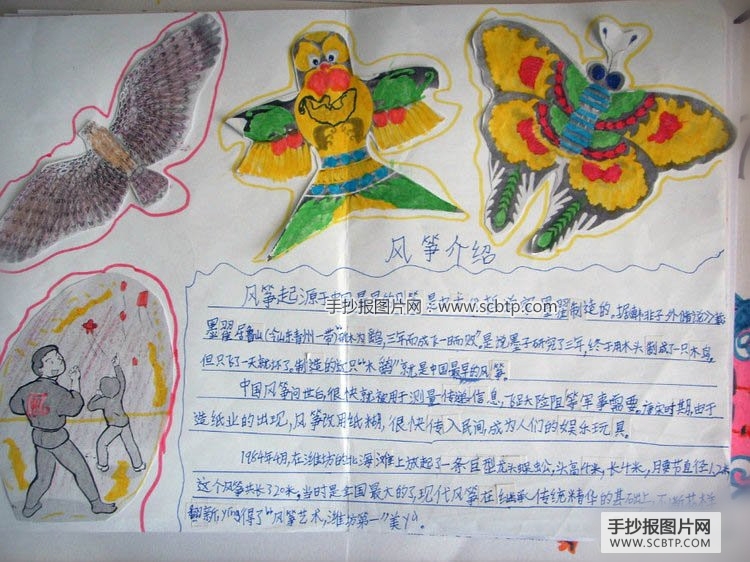 手抄报图片网
www.scbtp.com
风筝介绍
风筝起源于中国最早的风筝是 制造的。据《韩非子·外储说》载
墨翟居鲁山(今山东青州一带)"斫木为鹞,三年而成,飞一日而败"。是说墨子研究了三年,终于用木头制成了一只木鸟,
但只飞了一天就坏了。制造的这只"木鹞"就是中国最早的风筝。
中国风筝问世后,很快就被用于测量、传递信息,飞跃险阻等军事需要。唐宋时期,由于
造纸业的出现,风筝改用纸糊,很快传入民间,成为人们的娱乐玩具。
1984年4月,在潍坊的北海滩上放起了一条巨型龙头蜈蚣,头高4米,长4米,
这个风筝共长320米。当时是全国最大的了,现代风筝在继承传统精华的基础上,
翻新,赢得了"风筝艺术,潍坊第一"美
手抄报图片网
WWW.SCBTP.COM